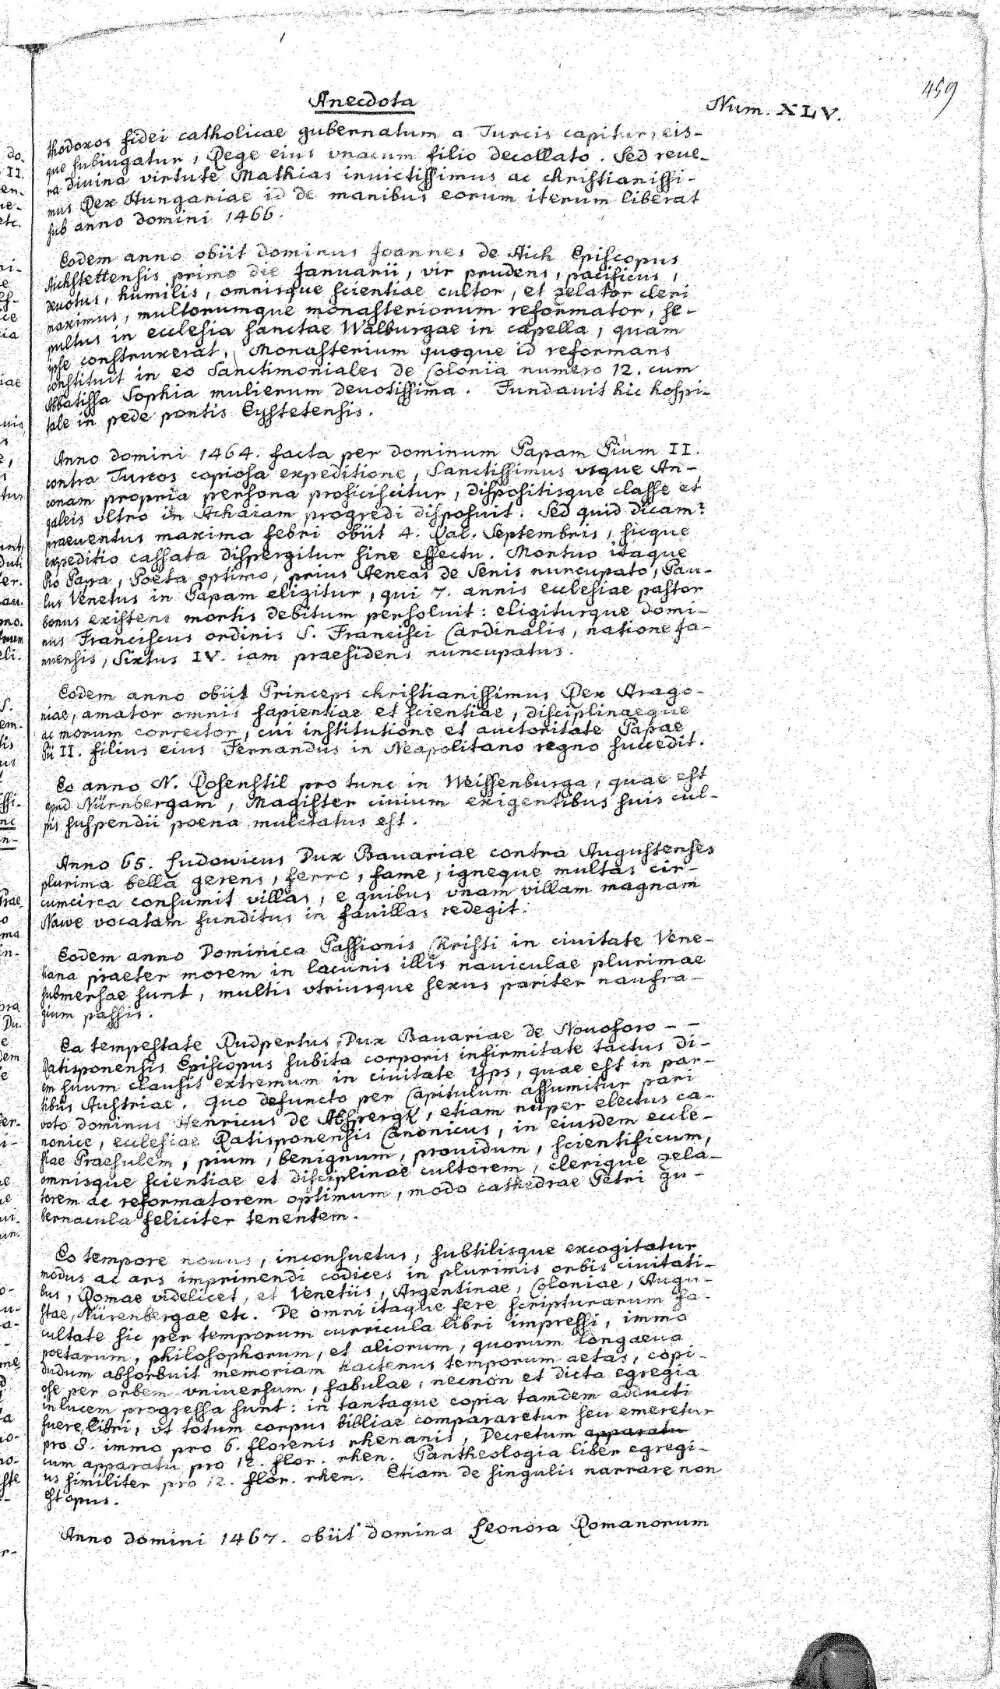 459
Anecdota
Num. XLV.
thodoxos fidei catholicae gubernatum a Turcis capitur, eis-
que subiugatur, Rege eius vnacum filio decollato. Sed reue-
ra divina virtute Mathias invictissimus ac christianissi-
mus Rex Hungariae id de manibus eorum iterum liberat
sub anno domini 1466.
Eodem anno obiit dominus Joannes de Aich Episcopus
Aichstettensis primo die Januarii, vir prudens, pacificus,
deuotus, humilis, omnisque scientiae cultor, et zelator cleri
maximus, multorumque monasteriorum reformator, se-
pultus in ecclesia sanctae Walburgae in capella, quam
ipse construxerat. Monasterium quoque id reformans
constituit in eo Sanctimoniales de Colonia numero 12. cum
Abbatissa Sophia mulierum deuotissima. Fundauit hic hospi-
tale in pede pontis Eystetensis.
Anno domini 1464. facta per dominum Papam Pium II.
contra Turcos copiosa expeditione, Sanctissimus vsque An-
conam propria persona proficiscitur, dispositisque classe et
galeis vltro in Achaiam progredi disposuit. Sed quid dicam?
praeuentus maxima febri obiit 4. Kal. Septembris, sicque
expeditio cassata dispergitur sine effectu. Mortuo itaque
Pio Papa, Poeta optimo, prius Aeneas de Senis nuncupato, Pau-
lus Venetus in Papam eligitur, qui 7. annis ecclesiae pastor
bonus existens mortis debitum persoluit: eligiturque domi-
nus Franciscus ordinis S. Francisci Cardinalis, natione Ja-
nuensis, Sixtus IV. iam praesidens nuncupatus.
Eodem anno obiit Princeps christianissimus Rex Arago-
niae, amator omnis sapientiae et scientiae, disciplinaeque
ac morum corrector, cui institutione et auctoritate Papae
Pii II. filius eius Fernandus in Neapolitano regno succedit.
Eo anno N. Rosenstil pro tunc in Weissenburga, quae est
apud Nürnbergam, Magister ciuium exigentibus suis cul-
pis suspendii poena mulctatus est.
Anno 65. Ludowicus Dux Bauariae contra Augustenses
plurima bella gerens, ferro, fame, igneque multas cir-
cumcirca consumit villas, e quibus vnam villam magnam
Nawe vocatam funditus in fauillas redegit.
Eodem anno Dominica Passionis Christi in ciuitate Vene-
tiana praeter morem in lacunis illis nauiculae plurimae
submersae sunt, multis vtriusque sexus pariter naufra-
gium passis.
Ea tempestate Rudpertus, Dux Bauariae de Nouoforo - -
Ratisponensis Episcopus subita corporis infirmitate tactus di-
em suum clausit extremum in ciuitate Yps, quae est in par-
tibus Austriae. Quo defuncto per Capitulum assumitur pari
voto dominus Henricus de Absperg, etiam nuper electus ca-
nonice, ecclesiae Ratisponensis Canonicus, in eiusdem eccle-
siae Praesulem, pium, benignum, prouidum, scientificum,
omnisque scientiae et disciplinae cultorem, clerique zela-
torem ac reformatorem optimum, modo cathedrae Petri gu-
bernacula feliciter tenentem.
Eo tempore nouus, inconsuetus, subtilisque excogitatur
modus ac ars imprimendi codices in plurimis orbis ciuitati-
bus, Romae videlicet, et Venetiis, Argentinae, Coloniae, Augu-
stae, Nürenbergae etc. De omni itaque fere scripturarum fa-
cultate sic per temporum curricula libri impressi, immo
poetarum, philosophorum, et aliorum, quorum longaeua
dudum absorbuit memoriam hactenus temporum aetas, copi-
ose per orbem vniuersum, fabulae, necnon et dicta egregia
in lucem progressa sunt: in tantaque copia tamdem adducti
fuere libri, vt totum corpus bibliae compararetur seu emeretur
pro 8. immo pro 6. florenis rhenanis, Decretum apparatu
cum apparatu pro 12. flor. rhen. Pantheologia liber egregi-
us similiter pro 12. flor. rhen. Etiam de singulis narrare non
est opus.
Anno domini 1467. obiit domina Leonora Romanorum